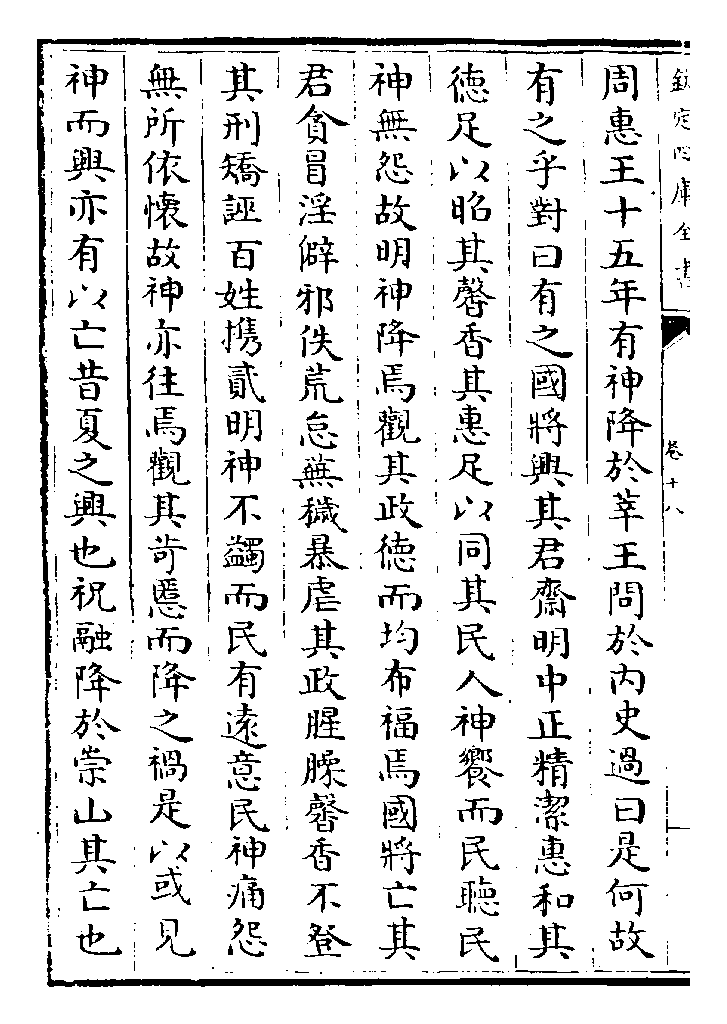 欽定四庫全書
卷十八
周惠王十五年有神降於莘王問於内史過曰是何故
有之乎對曰有之國將興其君齋明中正精潔惠和其
徳足以昭其馨香其惠足以同其民人神饗而民聴民
神無怨故明神降焉觀其政徳而均布福焉國將亡其
君貪冒淫僻邪佚荒怠蕪穢暴虐其政腥臊馨香不登
其刑矯誣百姓携貳明神不蠲而民有逺意民神痛怨
無所依懷故神亦往焉觀其苛慝而降之禍是以或見
神而興亦有以亡昔夏之興也祝融降於崇山其亡也